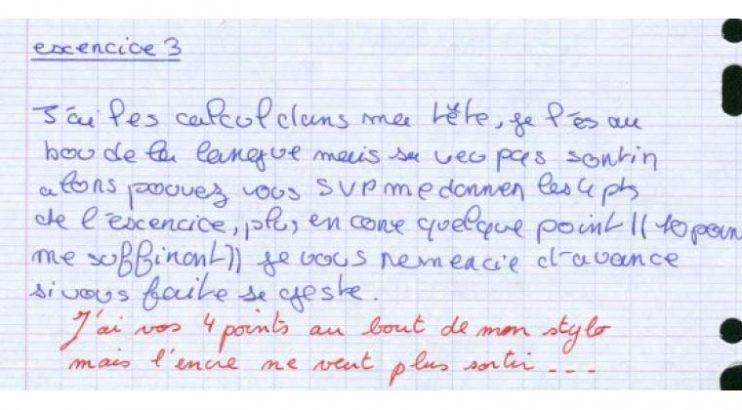 exencice 3
J'ai les calcul dans ma tête, je l'ės au
bou de la langue mais sa veu pas sortin
alons pouvez vous SVP me donnen les 4 pts
de l'exencice, plu, en cone quelque point (( 10 poin
me suffinont)) je vous nemencie d'avance
si vous faite se geste.
J'ai vos 4 points au bout de mon stylo
mais l'encre ne veut plus sortir ...